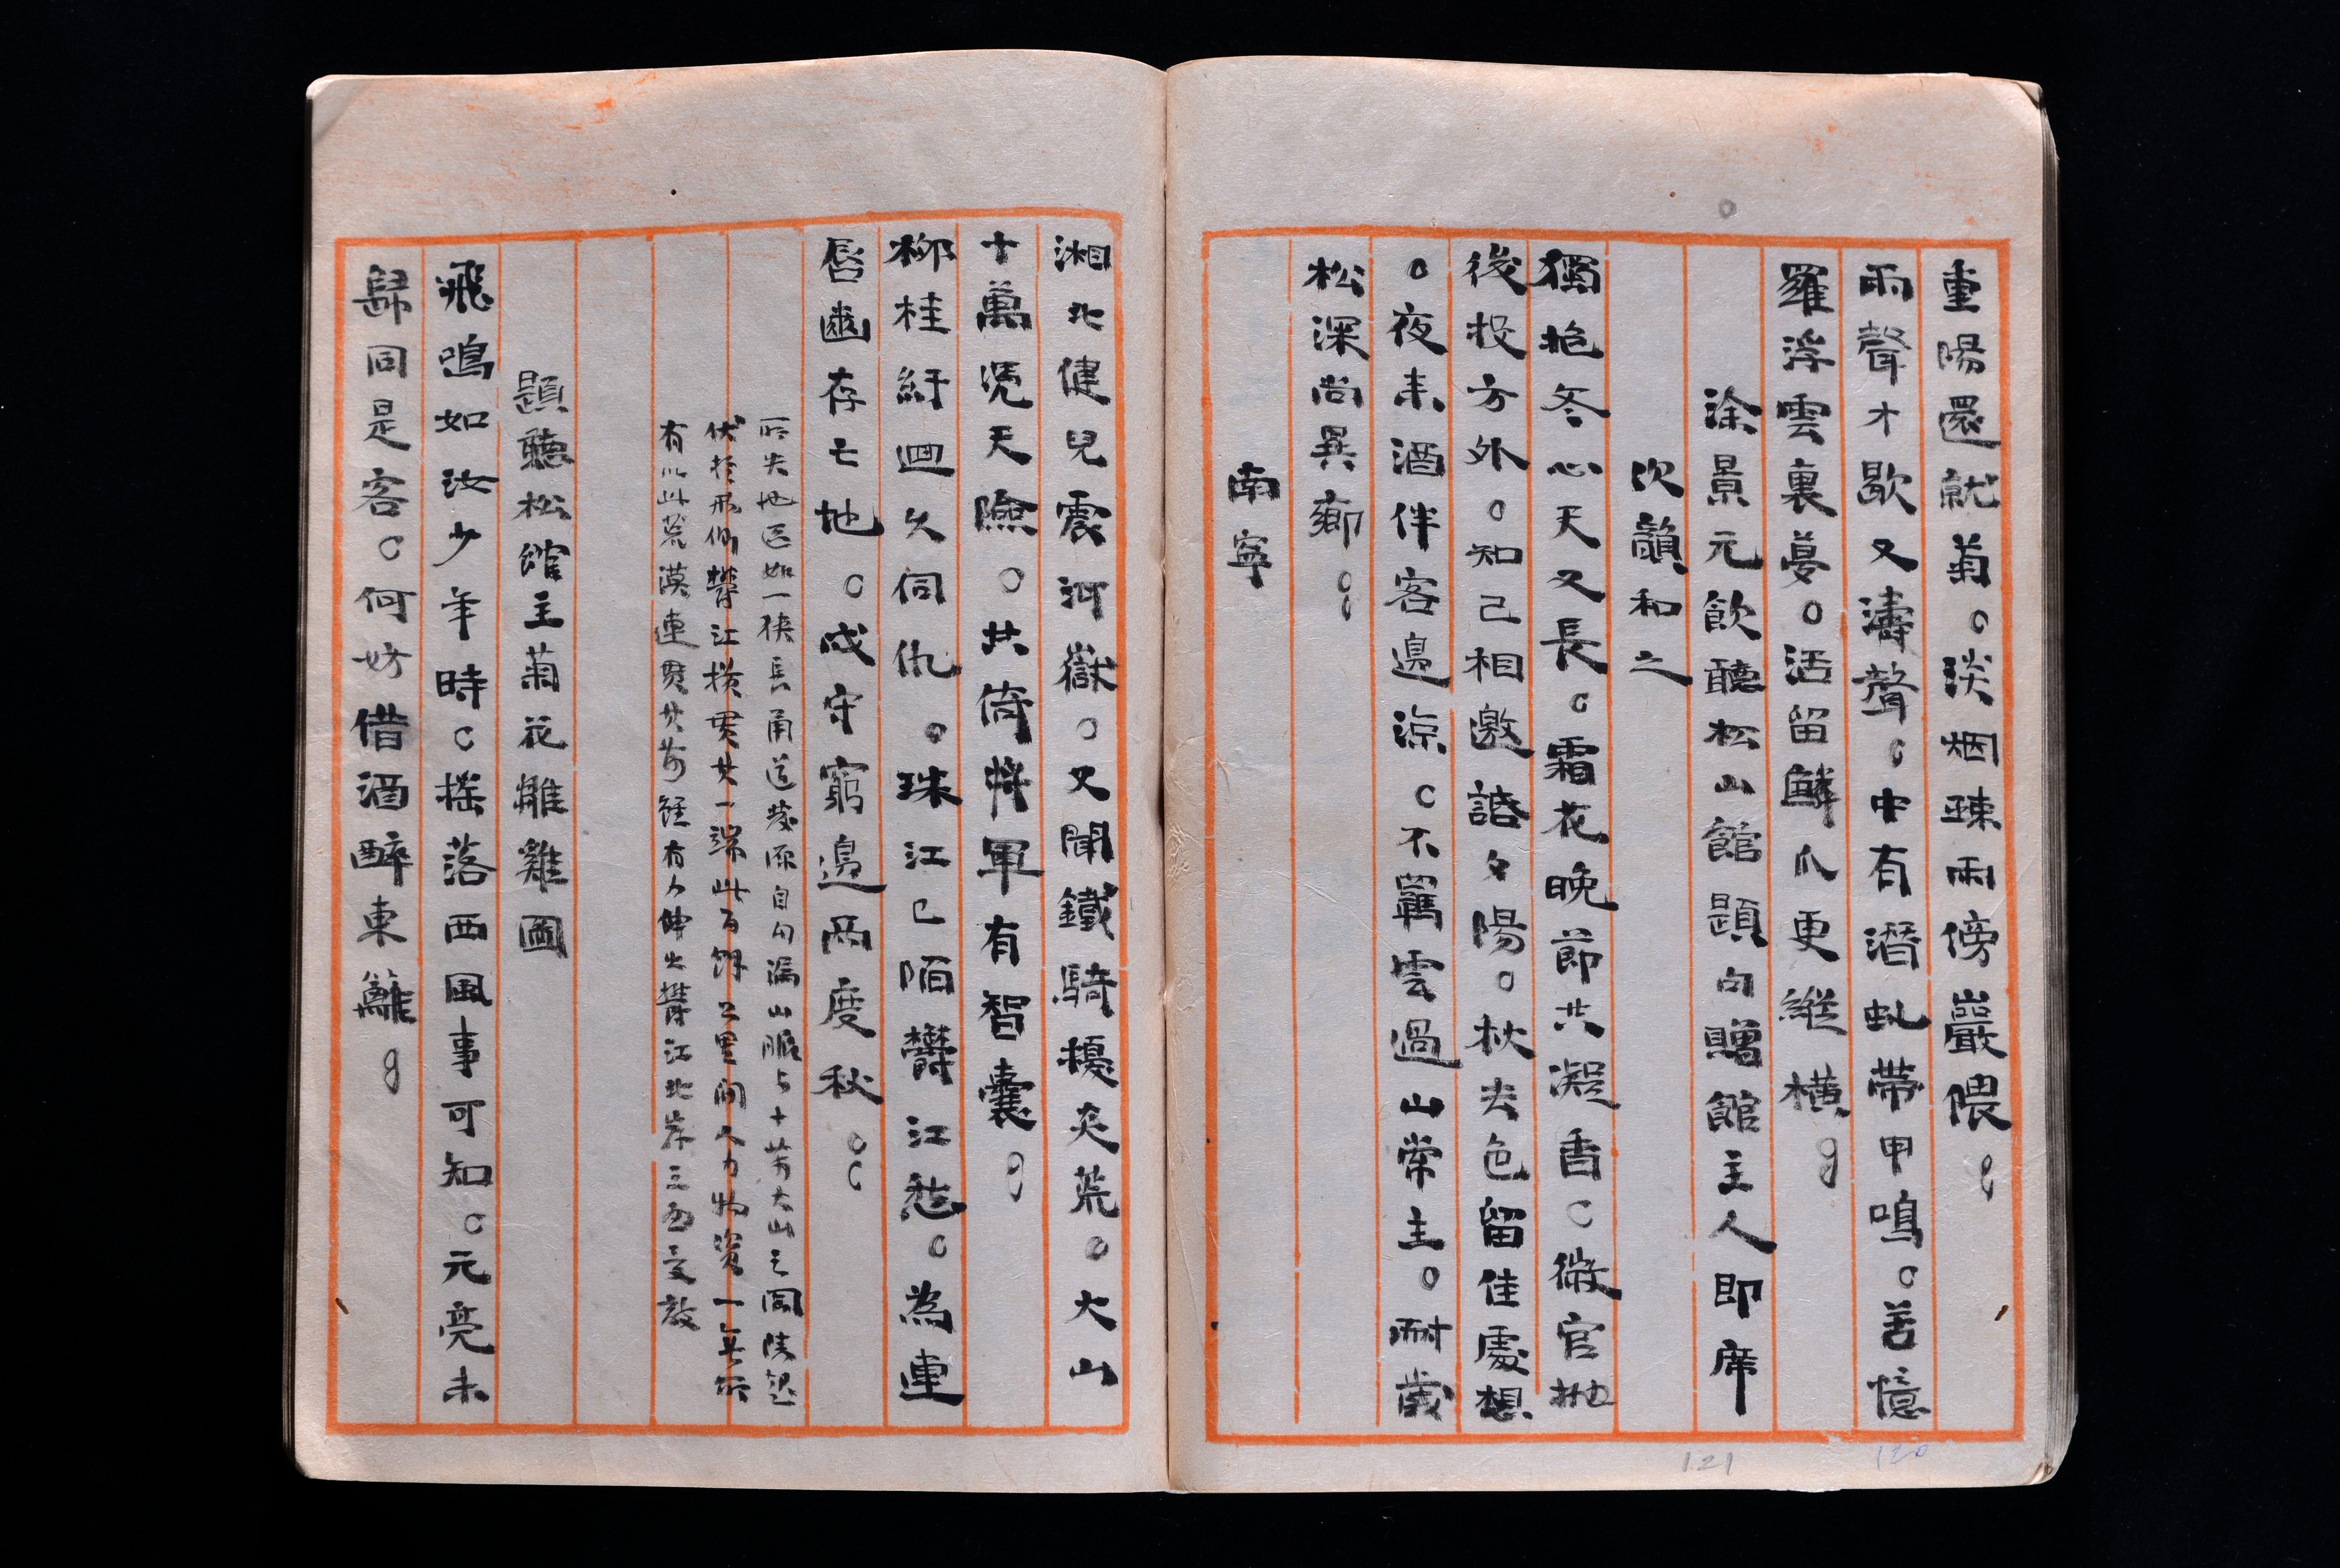 重陽還就菊。淡烟疎雨傍巖隈。
雨聲才歇又濤聲。中有潛虬帶甲鳴。苦憶
羅浮雲裏夢。活留鱗爪更縱橫。
涂景元飲聽松山館題句贈館主人即席
次韻和之
獨抱冬心天又長。霜花晚節共凝香。微官拋
後投方外。知己相邀話夕陽。秋去色留佳處想
。夜來酒伴客邊涼。不羈雲過山常主。耐歲
松深尚異鄉。
南寧
湘北健兒震河嶽。又聞鐵騎擾炎荒。大山
十萬憑天險。共倚將軍有智囊。
柳桂紆迴久伺仇。珠江已陌鬱江愁。為連
唇齒存亡地。戍守窮邊兩度秋。
所失地區如一狹長甬道蓋源自勾漏山脈與十萬大山之間陝起
伏於邢鬱江橫貫其一端此百餘公里間人力物資一無所
有以此荒漠連貫其前雖有人伸出鬱江北岸三西交敵
題聽松館主菊花雛雞圖
飛鳴如汝少年時。搖落西風事可知。元亮未
歸同是客。何妨借酒醉東籬。
120
121